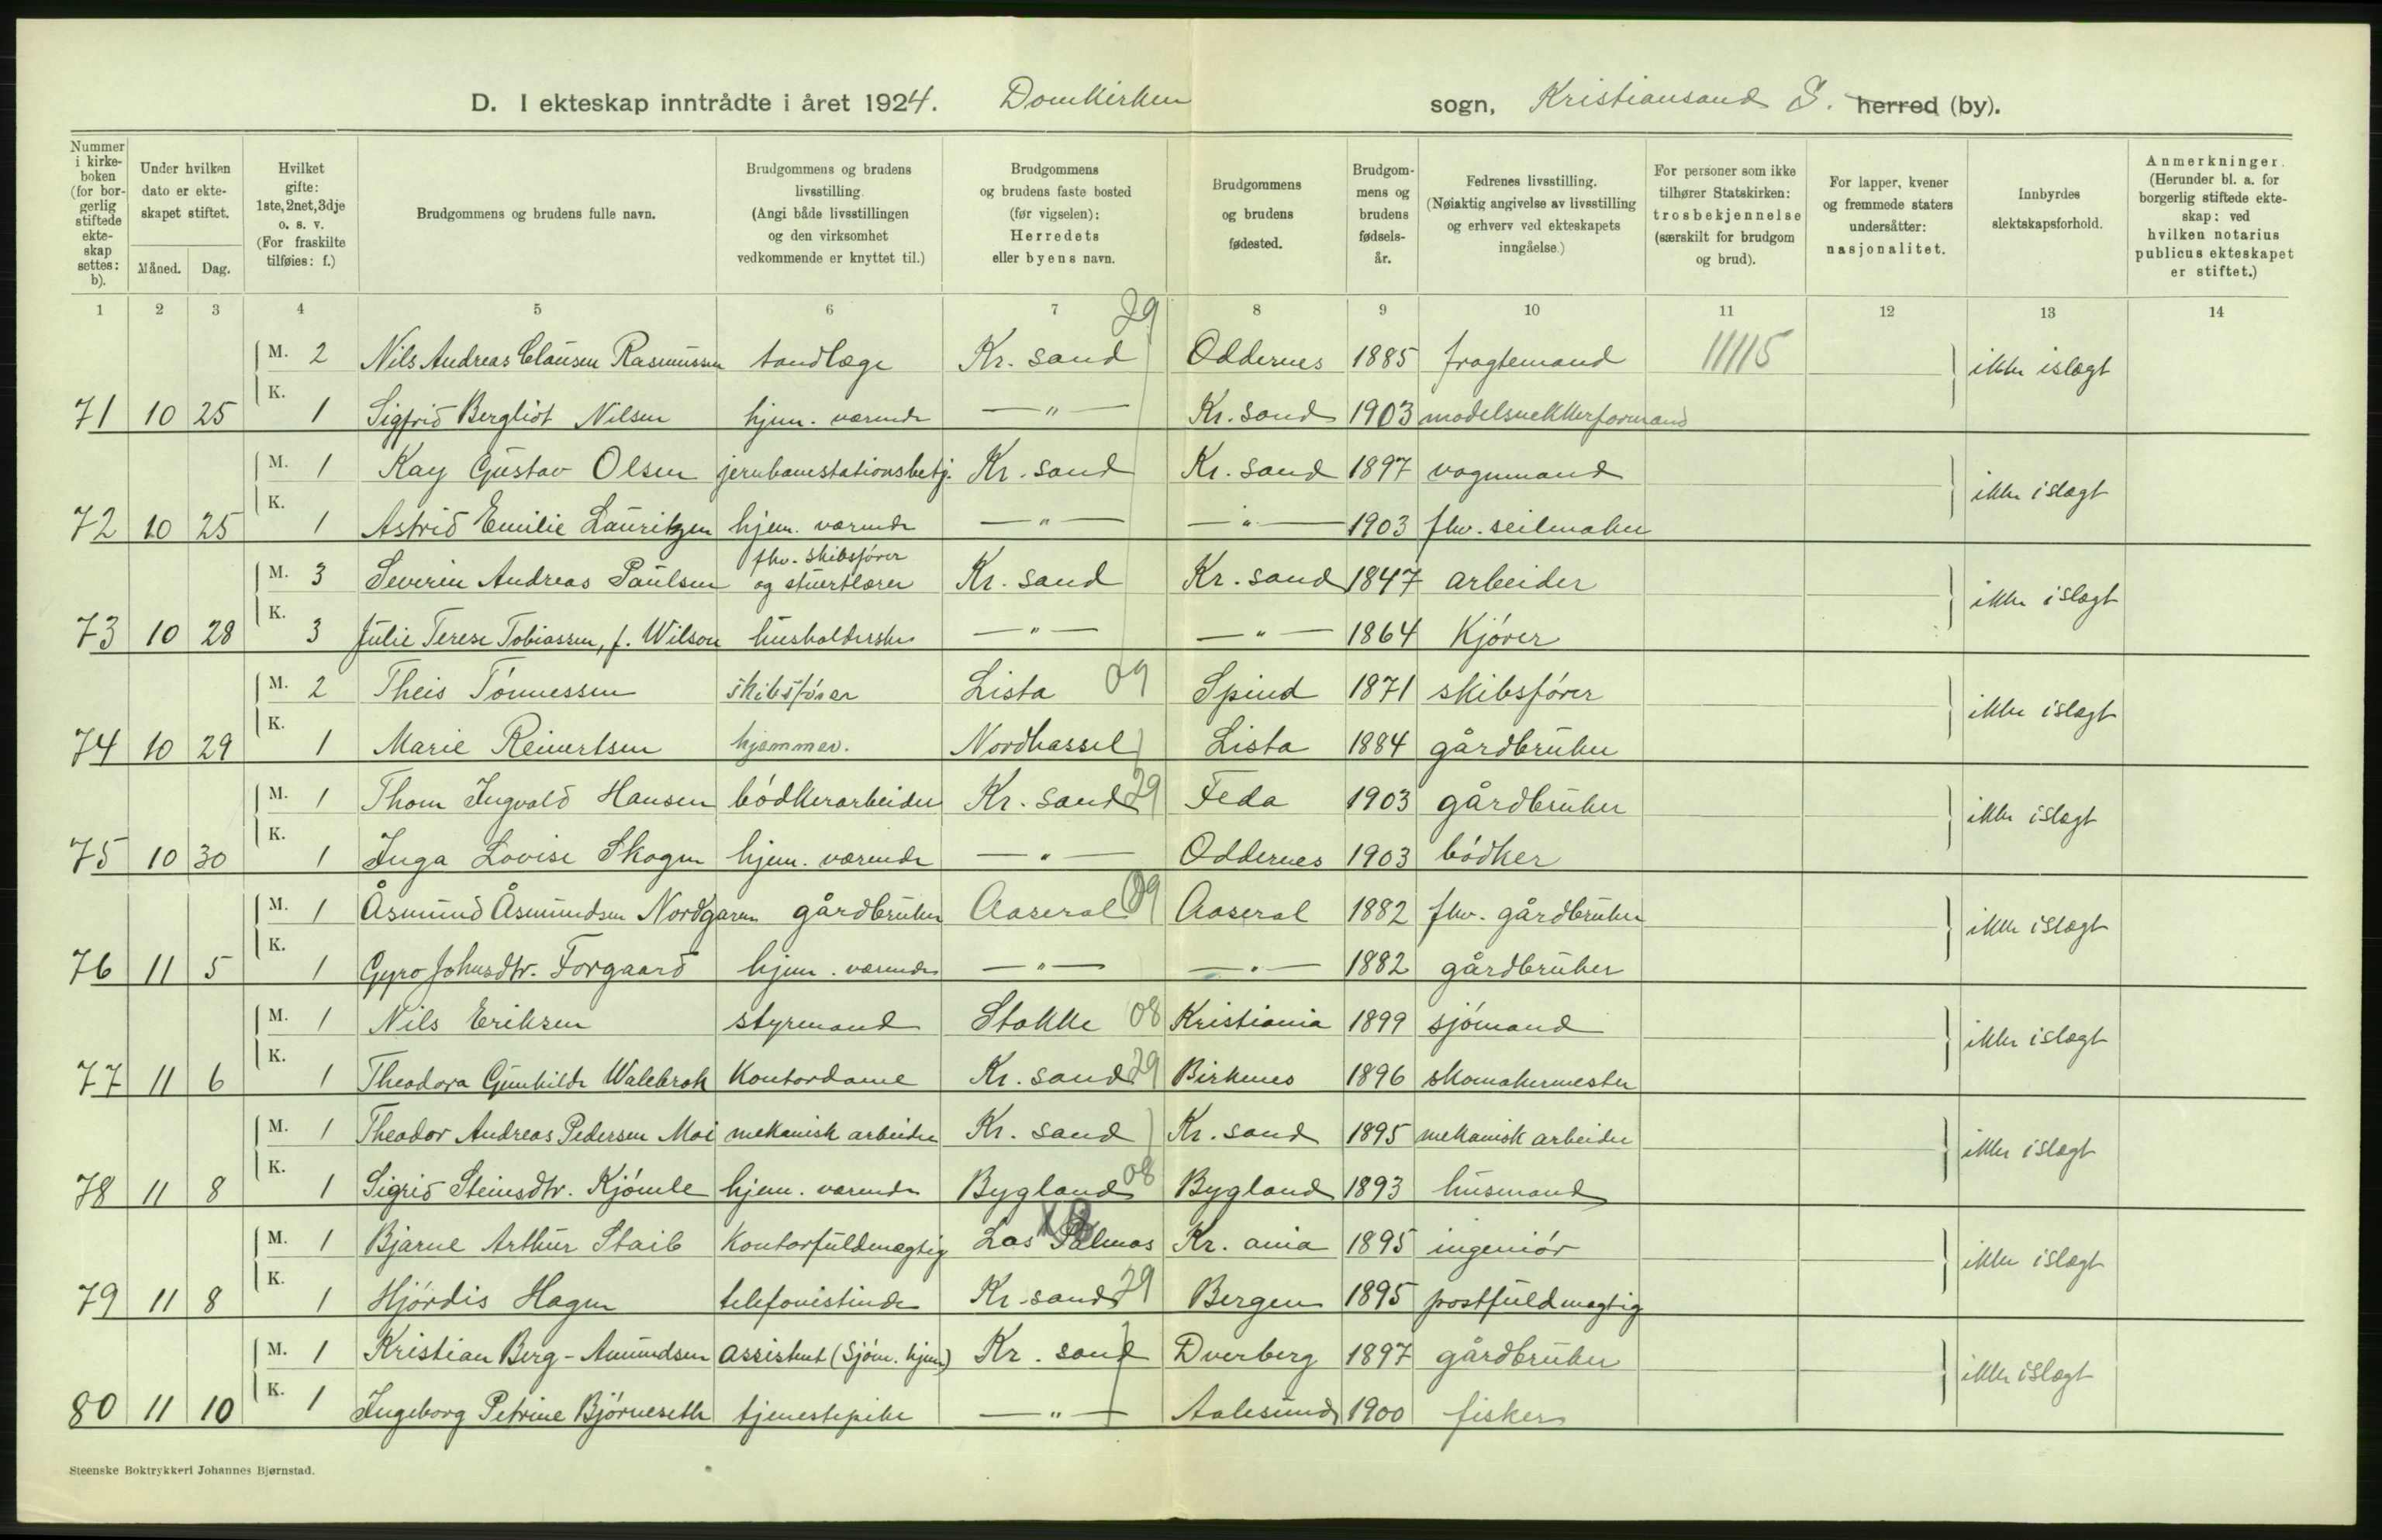 D. I ekteskap inntrådte i året 1924. Domkirken sogn, Kristiansand S. herred (by).
Nummer i kirkeboken (for borgerlig stiftede ekteskap settes: b).
Under hvilken dato er ekteskapet stiftet.
Måned. Dag.
Hvilket gifte: 1ste, 2net, 3dje o. s. v. (For fraskilte tilføies: f.)
Brudgommens og brudens fulle navn.
Brudgommens og brudens livsstilling. (Angi både livsstillingen og den virksomhet vedkommende er knyttet til.)
Brudgommens og brudens faste bosted (før vigselen): Herredets eller byens navn.
Brudgommens og brudens fødested.
Brudgommens og brudens fødselsår.
Fedrenes livsstilling. (Nøiaktig angivelse av livsstilling og erhverv ved ekteskapets inngåelse.)
For personer som ikke tilhører Statskirken: trosbekjennelse (særskilt for brudgom og brud).
For lapper, kvener og fremmede staters undersåtter: nasjonalitet.
Innbyrdes slektskapsforhold.
Anmerkninger. (Herunder bl. a. for borgerlig stiftede ekteskap: ved hvilken notarius publicus ekteskapet er stiftet.)
1 2 3 4 5 6 7 8 9 10 11 12 13 14
29
M. 2 Nils Andreas Clausen Rasmussen tandlæge Kr. sand Oddernes 1885 fragtemand 11115 ikke islægt
71 10 25 K. 1 Sigfrid Bergliot Nilsen hjem. værende —"— Kr. sand 1903 modelsnekkerformand
M. 1 Kay Gustav Olsen jernbanestationsbetj. Kr. sand Kr. sand 1897 vognmand ikke islægt
72 10 25 K. 1 Astrid Emilie Lauritzen hjem. værende —"— —"— 1903 fhv. seilmaker
fhv. skibsfører
M. 3 Severin Andreas Paulsen og stuertlærer Kr. sand Kr. sand 1847 arbeider ikke islægt
73 10 28 K. 3 Julie Terese Tobiassen, f. Wilson husholderske —"— —"— 1864 Kjører
M. 2 Theis Tönnessen skibsfører Lista 09 Spind 1871 skibsfører ikke islægt
74 10 29 K. 1 Marie Reinertsen hjemmev. Nordhassel Lista 1884 gårdbruker
M. 1 Thom Ingvald Hansen bødkerarbeider Kr. sand 29 Feda 1903 gårdbruker ikke islægt
75 10 30 K. 1 Inga Lovise Skogen hjem. værende —"— Oddernes 1903 bødker
M. 1 Åsmund Åsmundsen Nordgaren gårdbruker Aaseral 09 Aaseral 1882 fhv. gårdbruker ikke islægt
76 11 5 K. 1 Gyro Johnsdtr. Forgaard hjem. værende —"— —"— 1882 gårdbruker
M. 1 Nils Eriksen styrmand Stokke 08 Kristiania 1899 sjømand ikke islægt
77 11 6 K. 1 Theodora Gunhilde Walebrok Kontordame Kr. sand 29 Birkenes 1896 skomakermester
M. 1 Theodor Andreas Pedersen Moi mekanisk arbeider Kr. sand Kr. sand 1895 mekanisk arbeider ikke islægt
78 11 8 K. 1 Sigrid Steinsdtr. Kjømle hjem. værende Bygland 08 Bygland 1893 husmand
M. 1 Bjarne Arthur Staib Kontorfuldmægtig Las Palmas Kr. ania 1895 ingeniør ikke islægt
79 11 8 K. 1 Hjørdis Hagen telefonistinde Kr. sand 29 Bergen 1895 postfuldmægtig
M. 1 Kristian Berg-Amundsen assistent (Sjøm. hjem) Kr. sand Dverberg 1897 gårdbruker ikke islægt
80 11 10 K. 1 Ingeborg Petrine Bjørneseth tjenestepike —"— Aalesund 1900 fisker
Steenske Boktrykkeri Johannes Bjørnstad.